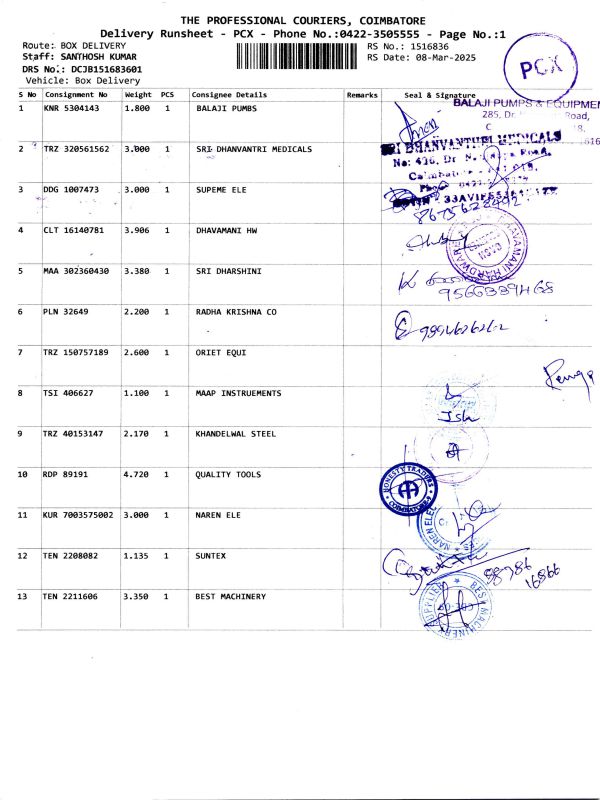 THE PROFESSIONAL COURIERS, COIMBATORE
Delivery Runsheet - PCX - Phone No.:0422-3505555 - Page No.:1
Route: BOX DELIVERY
RS No.: 1516836
Staff: SANTHOSH KUMAR
RS Date: 08-Mar-2025
DRS No.: DCJB151683601
Vehicle: Box Delivery
PCX
S No Consignment No Weight PCS Consignee Details Remarks Seal & Signature
1 KNR 5304143 1.800 1 BALAJI PUMBS
BALAJI PUMPS & EQUIPMEN
285, Dr. Road,
2 TRZ 320561562 3.000 1 SRI DHANVANTRI MEDICALS
SRI DHANVANTHRI MEDICALS
No: 416, Dr. Road,
3 DDG 1007473 3.000 1 SUPEME ELE
8675628492
4 CLT 16140781 3.906 1 DHAVAMANI HW
DHAVAMANI HARDWARE
5 MAA 302360430 3.380 1 SRI DHARSHINI
9566339468
6 PLN 32649 2.200 1 RADHA KRISHNA CO
7 TRZ 150757189 2.600 1 ORIET EQUI
8 TSI 406627 1.100 1 MAAP INSTRUEMENTS
9 TRZ 40153147 2.170 1 KHANDELWAL STEEL
10 RDP 89191 4.720 1 QUALITY TOOLS
HONESTY TRADERS
COIMBATORE
11 KUR 7003575002 3.000 1 NAREN ELE
NAREN ELEC
12 TEN 2208082 1.135 1 SUNTEX
98786
16866
13 TEN 2211606 3.350 1 BEST MACHINERY
BEST MACHINERY SUPPLIED